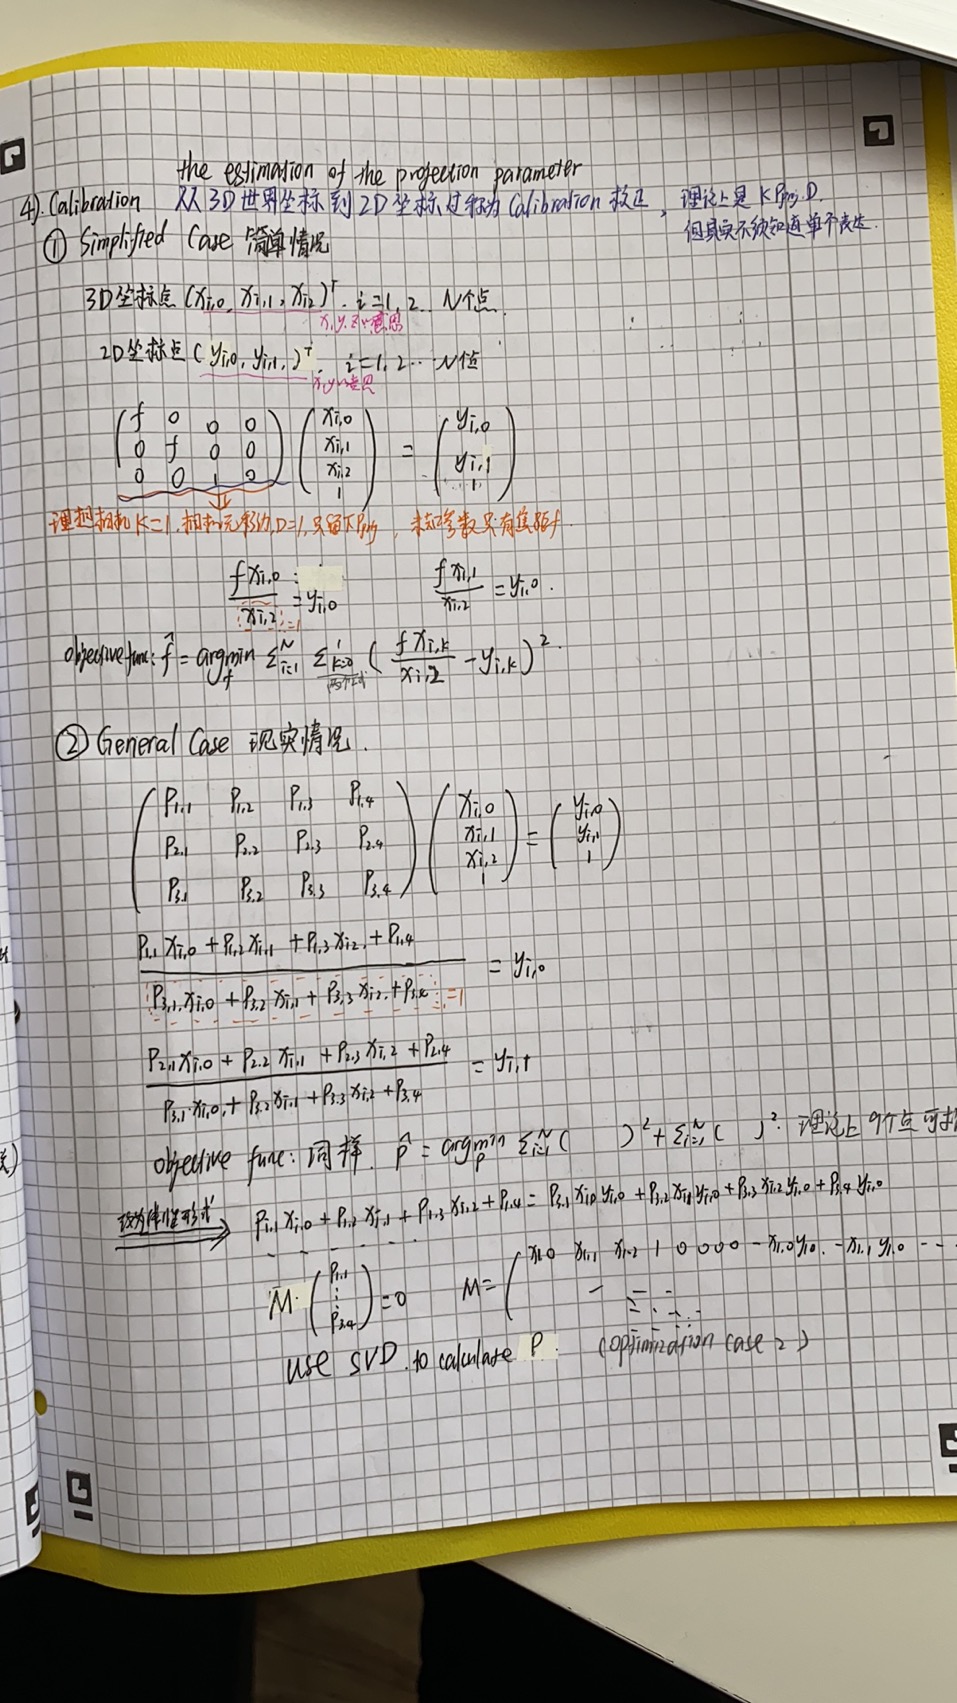 the estimation of the projection parameter
4). Calibration 从3D世界坐标到2D坐标过称为Calibration 校正, 理论上是 K Pproj D.
但其实不须知道单个表达.
① Simplified Case 简单情况
3D坐标点 (xi,0, xi,1, xi,2)ᵀ. i=1,2.. N个点.
x,y,z 意思
2D坐标点 (yi,0, yi,1,)ᵀ. i=1,2... N值
x,y 意思
( f 0 0 0 ) ( xi,0 ) = ( yi,0 )
( 0 f 0 0 ) ( xi,1 ) ( yi,1 )
( 0 0 1 0 ) ( xi,2 ) ( 1 )
1
理想相机 K=1, 相机无移动, D=1, 只留下Pproj, 未知参数只有焦距f.
f xi,0 / xi,2 = yi,0 f xi,1 / xi,2 = yi,0.
=1
objective func: f̂ = argmin f Σ i=1 N Σ k=0 1 ( f xi,k / xi,2 - yi,k )².
② General Case 现实情况.
( P1,1 P1,2 P1,3 P1,4 ) ( xi,0 ) = ( yi,0 )
( P2,1 P2,2 P2,3 P2,4 ) ( xi,1 ) ( yi,1 )
( P3,1 P3,2 P3,3 P3,4 ) ( xi,2 ) ( 1 )
1
P1,1 xi,0 + P1,2 xi,1 + P1,3 xi,2 + P1,4 / P3,1 xi,0 + P3,2 xi,1 + P3,3 xi,2 + P3,4 = yi,0
=1
P2,1 xi,0 + P2,2 xi,1 + P2,3 xi,2 + P2,4 / P3,1 xi,0 + P3,2 xi,1 + P3,3 xi,2 + P3,4 = yi,1
objective func: 同样. p̂ = argmin p Σ i=1 N ( )² + Σ i=1 N ( )². 理论上9个点可
改为线性形式 P1,1 xi,0 + P1,2 xi,1 + P1,3 xi,2 + P1,4 = P3,1 xi,0 yi,0 + P3,2 xi,1 yi,0 + P3,3 xi,2 yi,0 + P3,4 yi,0
M · ( P1,1 ⋮ P3,4 ) = 0 M = ( x1,0 x1,1 x1,2 1 0 0 0 0 - x1,0 y1,0. - x1,1 y1,0 - -
use SVD. to calculate P. (optimization case 2)